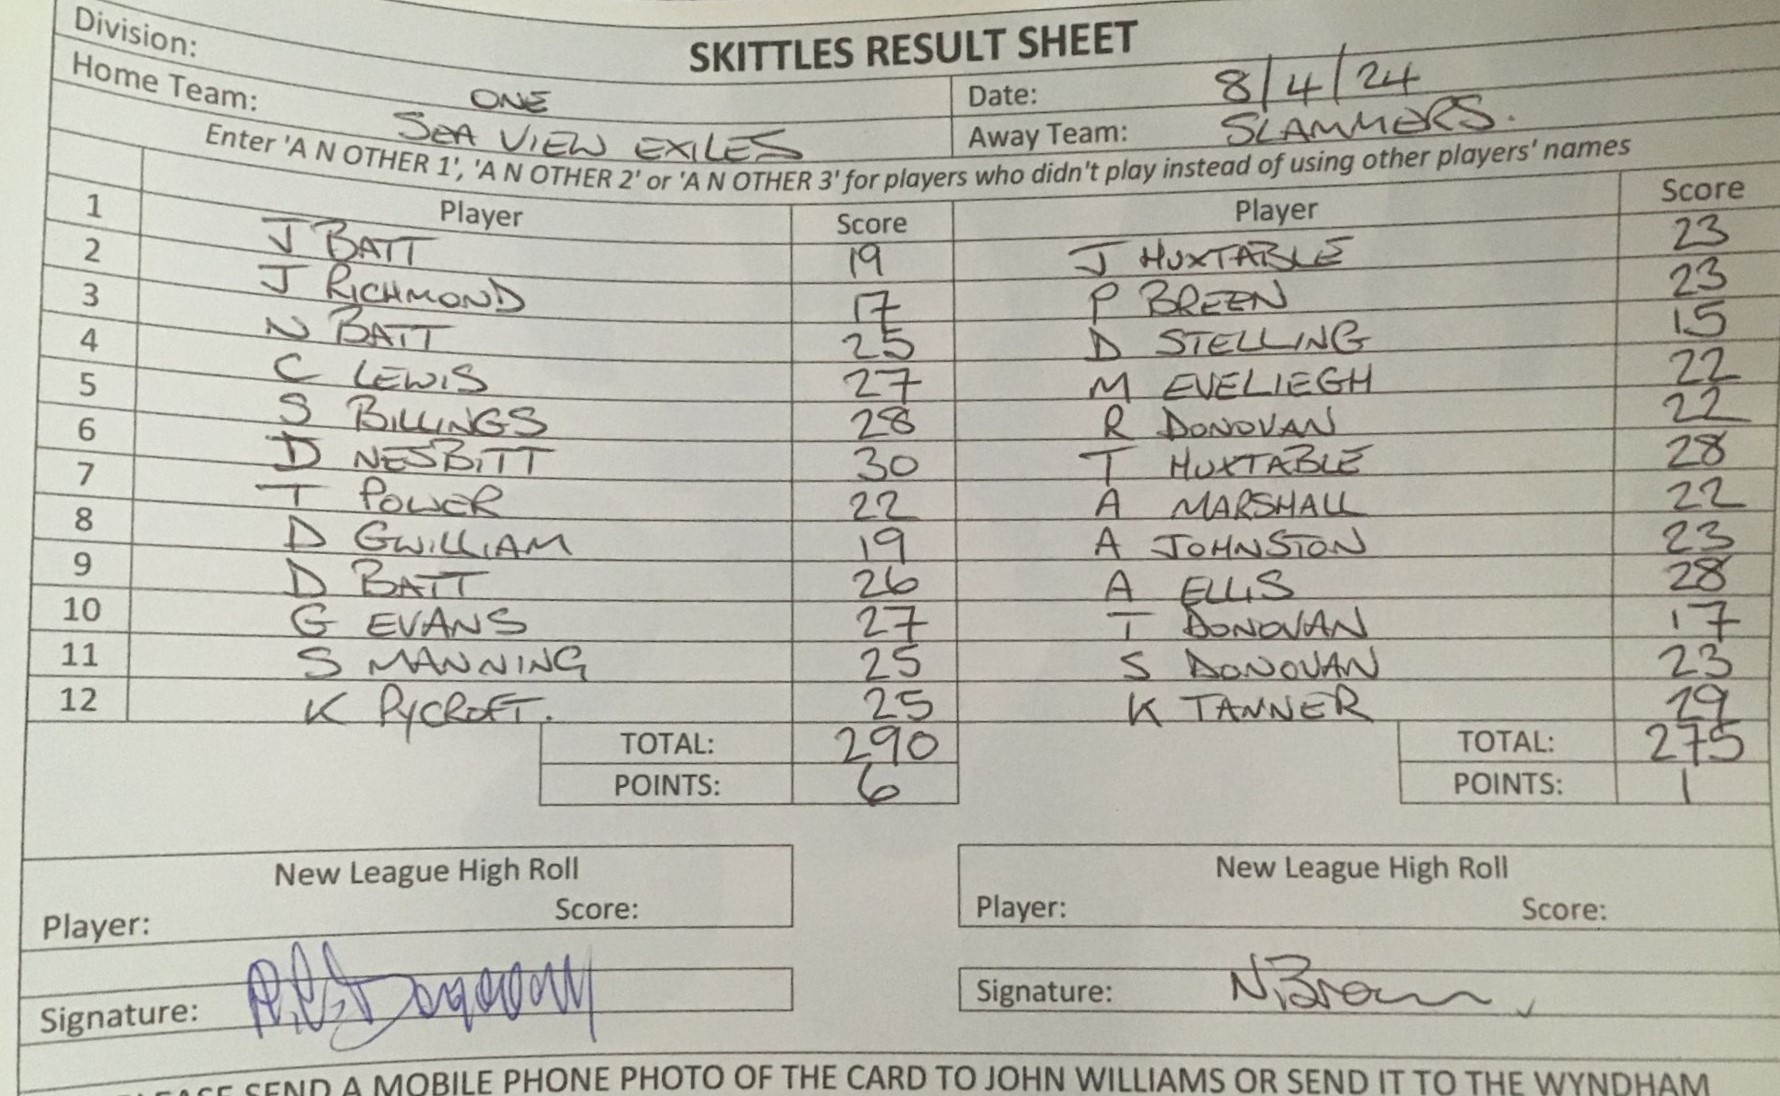 SKITTLES RESULT SHEET
Division: ONE Date: 8/4/24
Home Team: SEA VIEW EXILES Away Team: SLAMMERS.
Enter 'A N OTHER 1', 'A N OTHER 2' or 'A N OTHER 3' for players who didn't play instead of using other players' names
Player Score Player Score
1 J BATT 19 J HUXTABLE 23
2 J RICHMOND 17 P BREEN 23
3 N BATT 25 D STELLING 15
4 C LEWIS 27 M EVELIEGH 22
5 S BILLINGS 28 R DONOVAN 22
6 D NESBITT 30 T HUXTABLE 28
7 T POWER 22 A MARSHALL 22
8 D GWILLIAM 19 A JOHNSTON 23
9 D BATT 26 A ELLIS 28
10 G EVANS 27 T DONOVAN 17
11 S MANNING 25 S DONOVAN 23
12 K RYCROFT. 25 K TANNER 29
TOTAL: 290 TOTAL: 275
POINTS: 6 POINTS: 1
New League High Roll New League High Roll
Player: Score: Player: Score:
Signature: Signature: N. Brown
SEND A MOBILE PHONE PHOTO OF THE CARD TO JOHN WILLIAMS OR SEND IT TO THE WYNDHAM